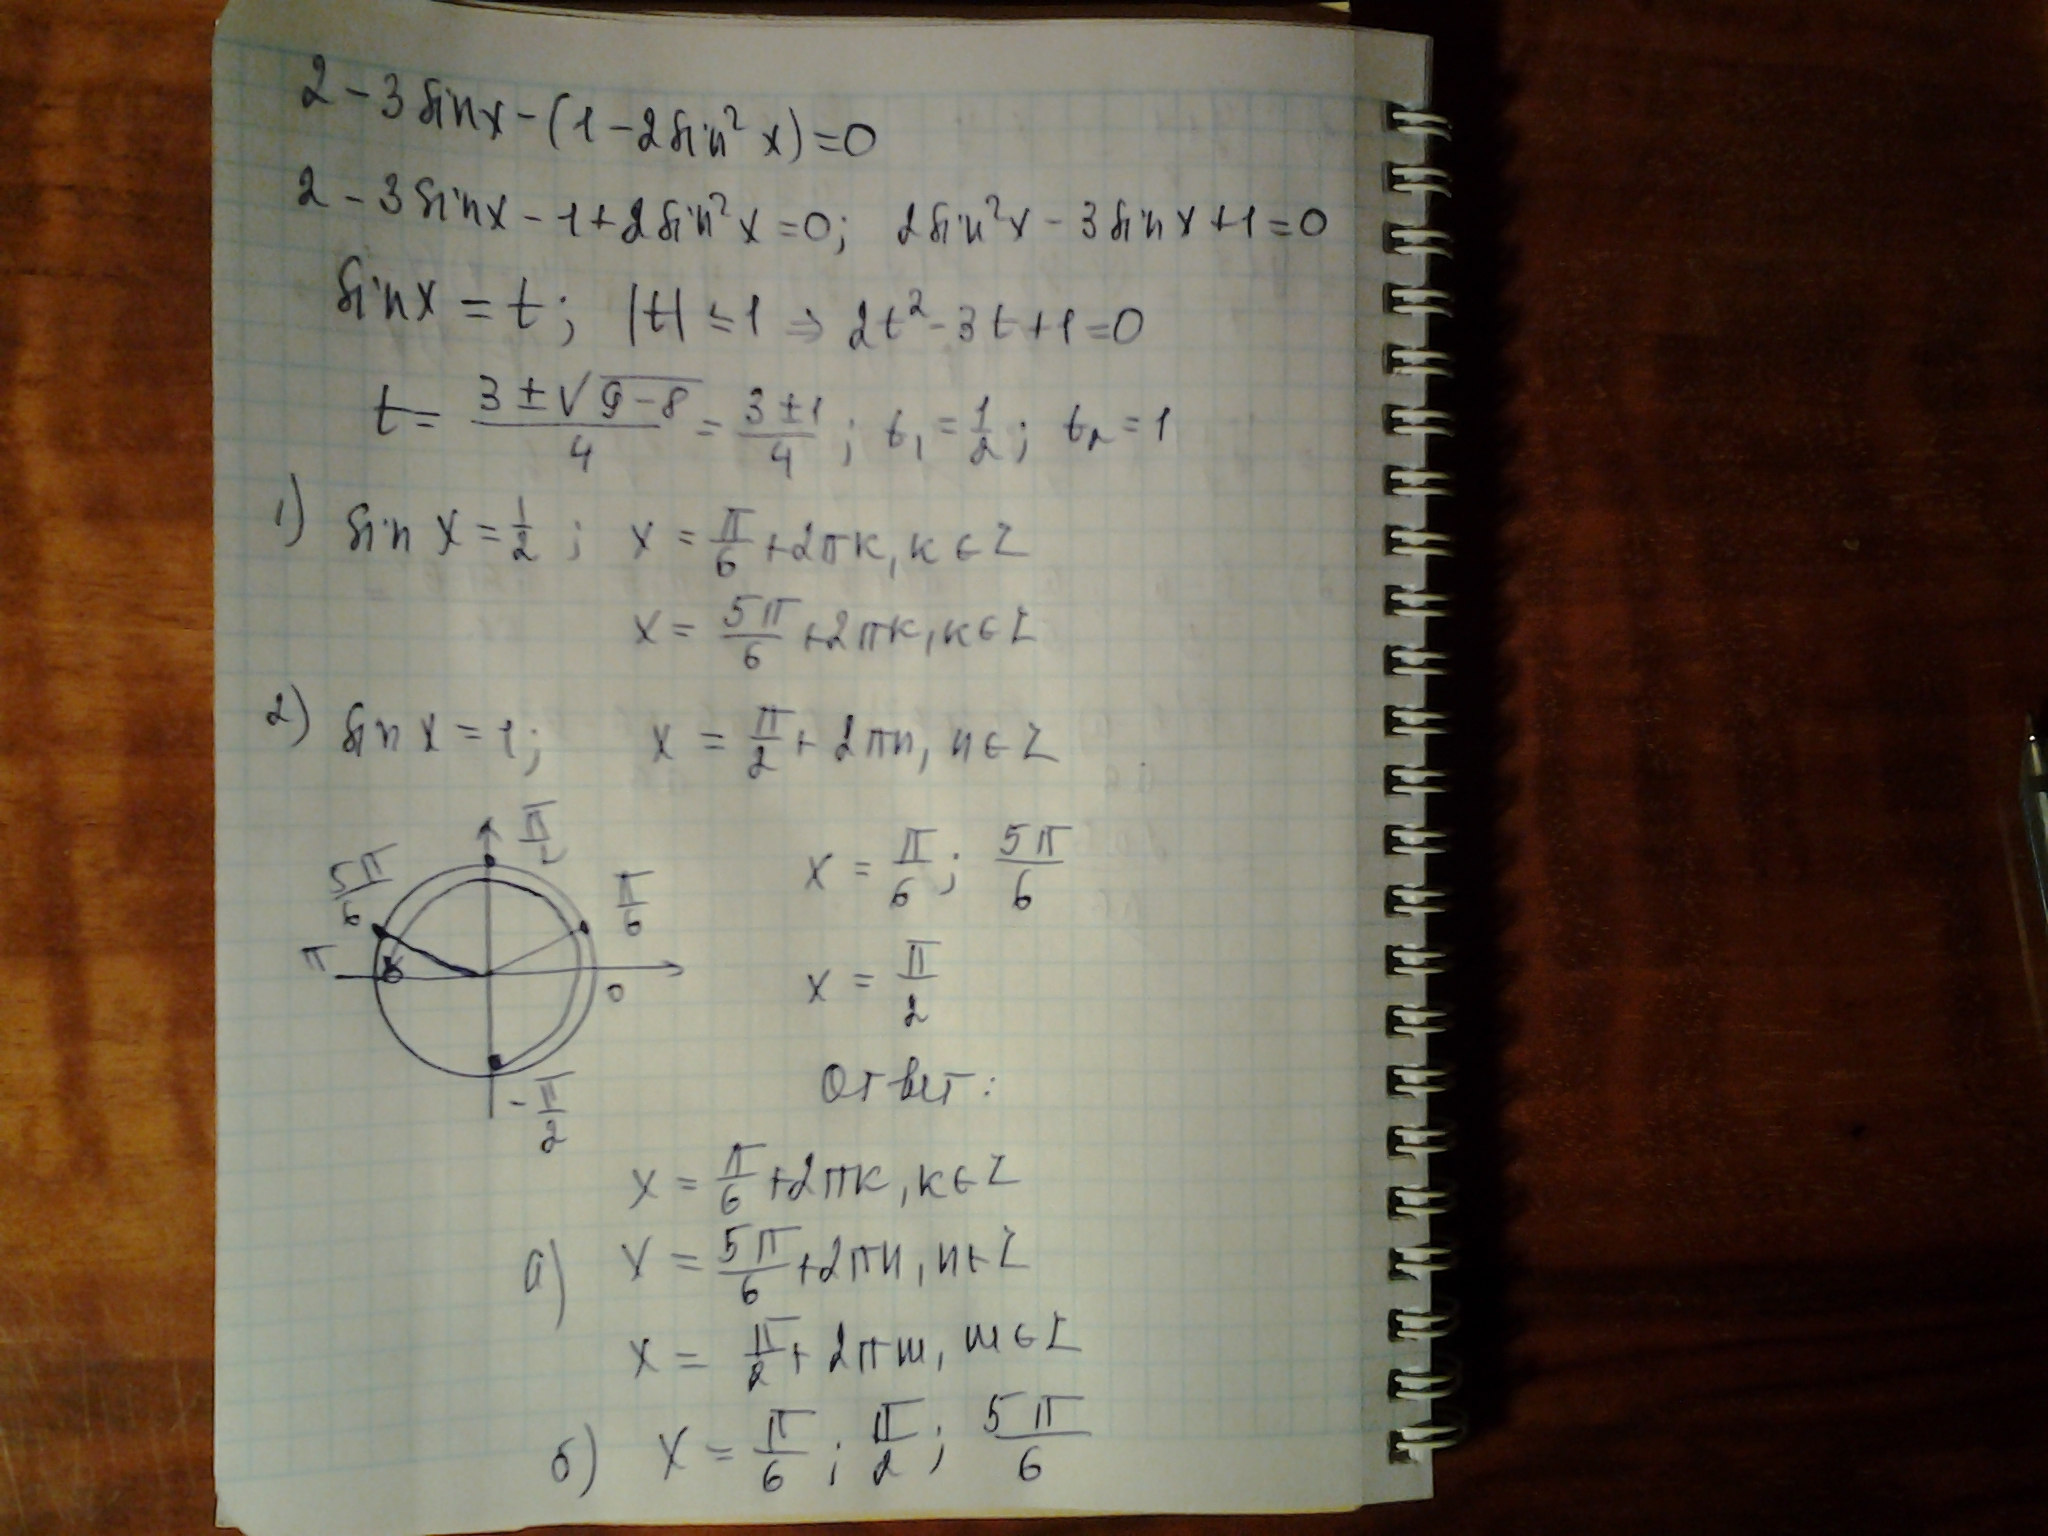 2 - 3 sin x - (1 - 2 sin² x) = 0
2 - 3 sin x - 1 + 2 sin² x = 0; 2 sin² x - 3 sin x + 1 = 0
sin x = t; |t| ≤ 1 ⇒ 2t² - 3t + 1 = 0
t = (3 ± √(9-8))/4 = (3 ± 1)/4; t₁ = 1/2; t₂ = 1
1) sin x = 1/2; x = π/6 + 2πк, к ∈ Z
x = 5π/6 + 2πк, к ∈ Z
2) sin x = 1; x = π/2 + 2πn, n ∈ Z
π/2
5π/6
π/6
π
0
-π/2
x = π/6; 5π/6
x = π/2
Ответ:
x = π/6 + 2πк, к ∈ Z
а) x = 5π/6 + 2πn, n ∈ Z
x = π/2 + 2πm, m ∈ Z
б) x = π/6; π/2; 5π/6